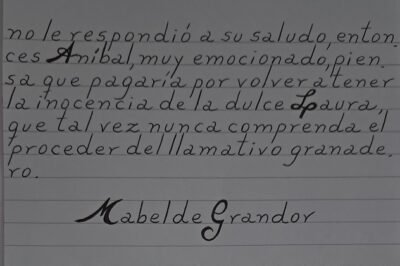 no le respondió a su saludo, enton-
ces Aníbal, muy emocionado, pien-
sa que pagaría por volver a tener
la inocencia de la dulce Isaura,
que tal vez nunca comprenda el
proceder del llamativo granade-
ro.
Mabel de Grandor